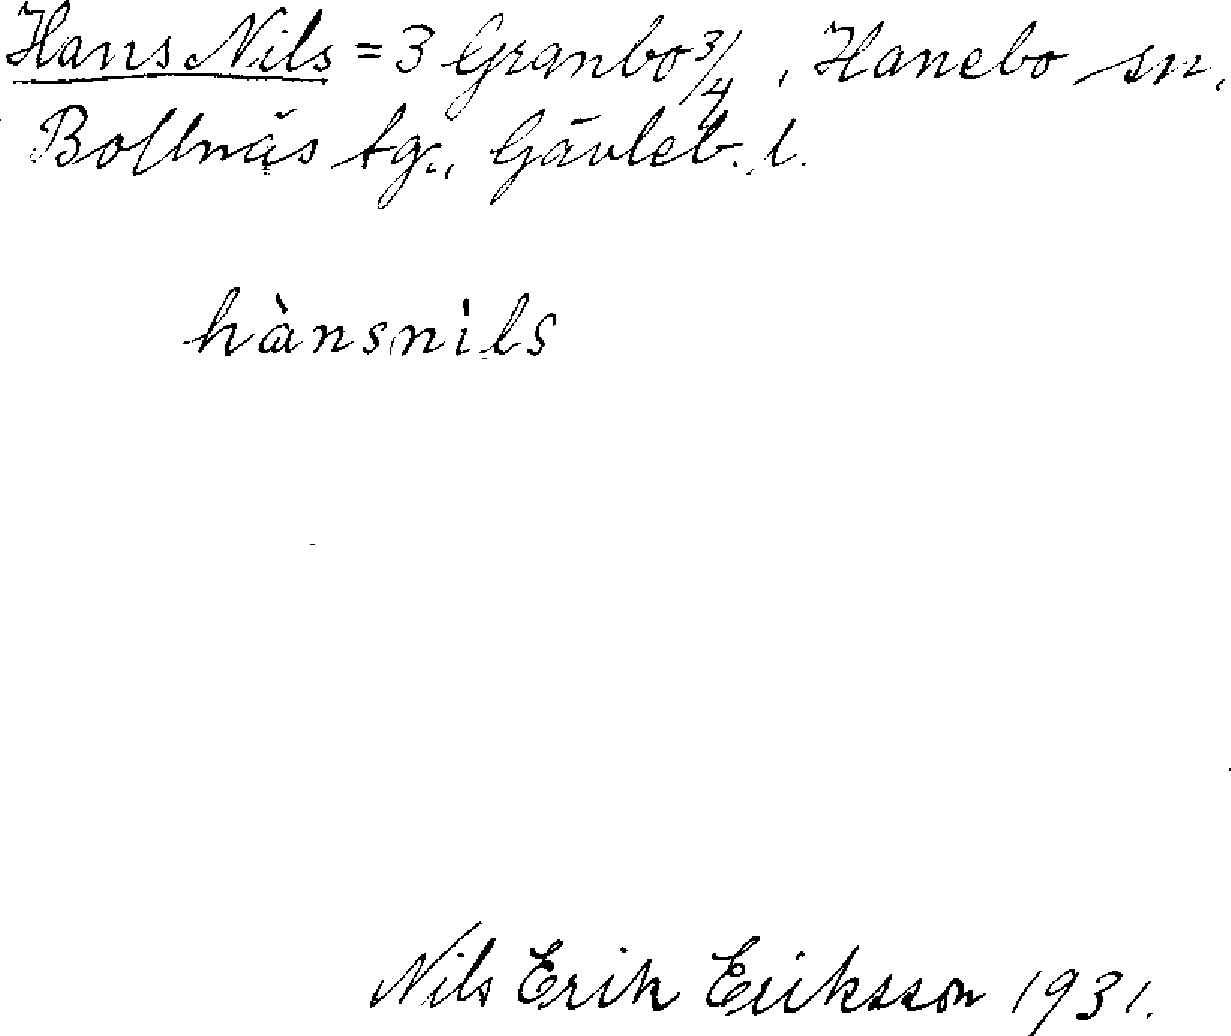 Hans Nils = 3 Granbo 3/4, Hanebo sn,
Bollnäs tg., Gävleb. l.
hànsnìls
Nils Erik Eriksson 1931.